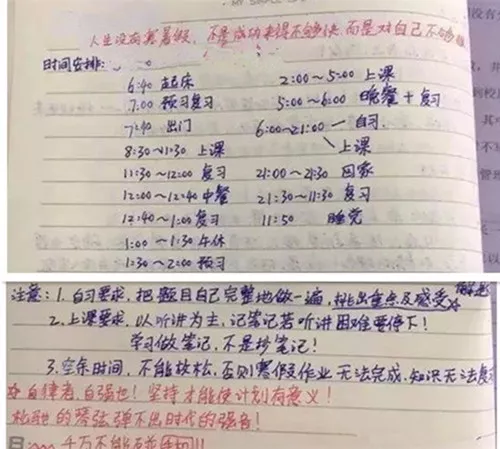 人生没有寒暑假，不是成功来得不够快，而是对自己不够狠
时间安排：
6:40 起床
7:00 预习复习
7:40 出门
8:30~11:30 上课
11:30~12:00 复习
12:00~12:40 中餐
12:40~1:00 复习
1:00~1:30 午休
1:30~2:00 预习
2:00~5:00 上课
5:00~6:00 晚餐+复习
6:00~21:00 一自习
上课
21:00~21:30 回家
21:30~11:30 复习
11:50 睡觉
注意：1. 自习要求，把题目自己完整地做一遍，挑出重点及感受
2. 上课要求，以听讲为主，记笔记若听讲困难要停下！
学习做笔记，不是抄笔记！
3. 空余时间，不能放松，否则寒假作业无法完成，知识无法复
自律者，自强也！坚持才能使计划有意义！
松弛的琴弦弹不出时代的强音！
千万不能玩手机!!